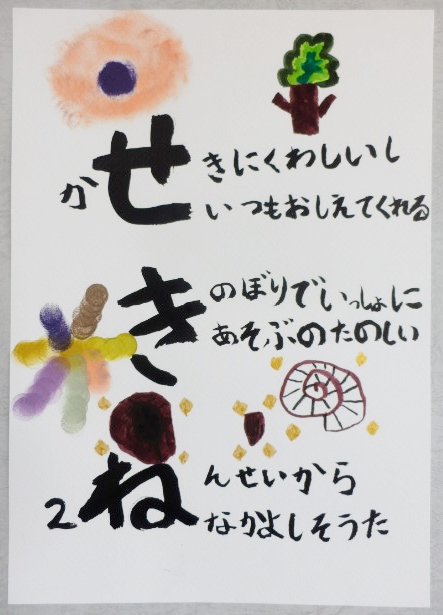 かせきにくわしいし
いつもおしえてくれる
きのぼりでいっしょに
あそぶのたのしい
2ねんせいから
なかよしそうた